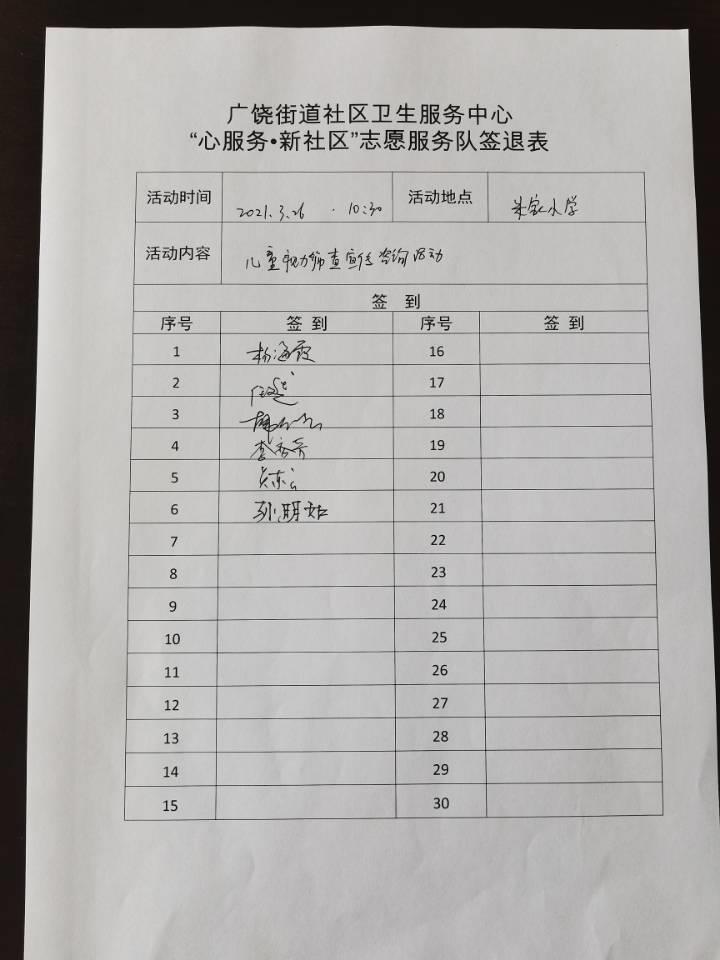 广饶街道社区卫生服务中心
“心服务•新社区”志愿服务队签退表
活动时间 2021.3.26 10:30 活动地点 朱家小学
活动内容 儿童视力筛查宣传咨询活动
签 到
序号 签 到 序号 签 到
1 杨海霞 16
2 17
3 18
4 李秀芬 19
5 20
6 孙明如 21
7 22
8 23
9 24
10 25
11 26
12 27
13 28
14 29
15 30